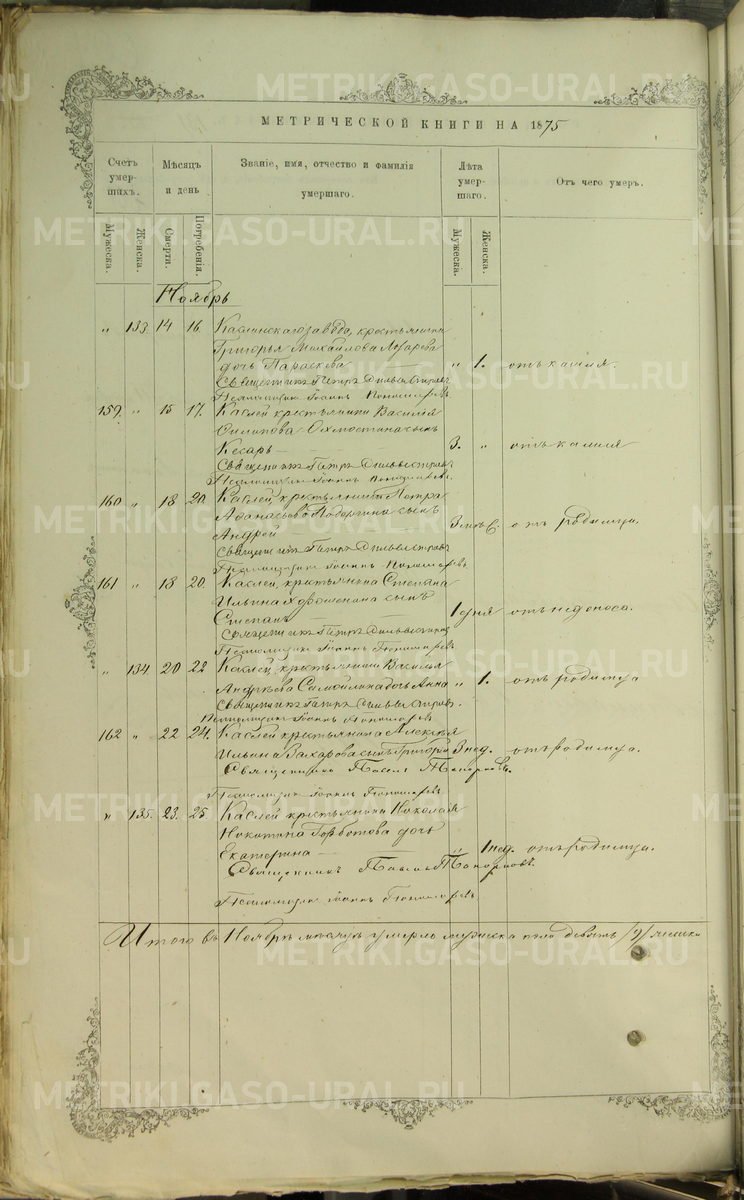 МЕТРИЧЕСКОЙ КНИГИ НА 1875
Счетъ умершихъ.
Мѣсяцъ и день
Званіе, имя, отчество и фамилія умершаго.
Лѣта умершаго.
Отъ чего умеръ.
Мужеска.
Женска.
Смерти.
Погребенія.
Мужеска.
Женска.
Ноябрь
" 133. 14 16. Каслинскаго завода, крестьянина
Григорья Михайлова
дочь Параскева " 1. отъ кашля.
Священникъ Петръ
Псаломщикъ Іоаннъ Пономаревъ
159. " 15 17. Каслей крестьянина Василія
сынъ
Кесарь 3. " отъ кашля
Священникъ Петръ
Псаломщикъ Іоаннъ Пономаревъ
160 " 18 20. Каслей, крестьянина Петра
Афанасьева сынъ
Андрей отъ родимца.
Священникъ Петръ
Псаломщикъ Іоаннъ Пономаревъ
161 " 18 20. Каслей, крестьянина Степана
Ильина сынъ
Степанъ 1 дня отъ недоноса.
Священникъ Петръ
Псаломщикъ Іоаннъ Пономаревъ
" 134. 20 22 Каслей, крестьянина Василья
Андрѣева дочь Анна " 1. отъ родимца
Священникъ Петръ
Псаломщикъ Іоаннъ Пономаревъ
162 " 22 24. Каслей крестьянина Алексѣя
Ильина Захарова сынъ Григорій 3 нед. отъ родимца.
Священникъ Павелъ Топорковъ.
Псаломщикъ Іоаннъ Пономаревъ
" 135. 23. 25. Каслей крестьянина Николая
Никитина Горботова дочь
Екатерина " 1 нед. отъ родимца.
Священникъ Павелъ Топорковъ.
Псаломщикъ Іоаннъ Пономаревъ
Итого въ Ноябрѣ мѣсяцѣ умерло мужеска пола девять /9/ женска
METRIKI.GASO-URAL.RU